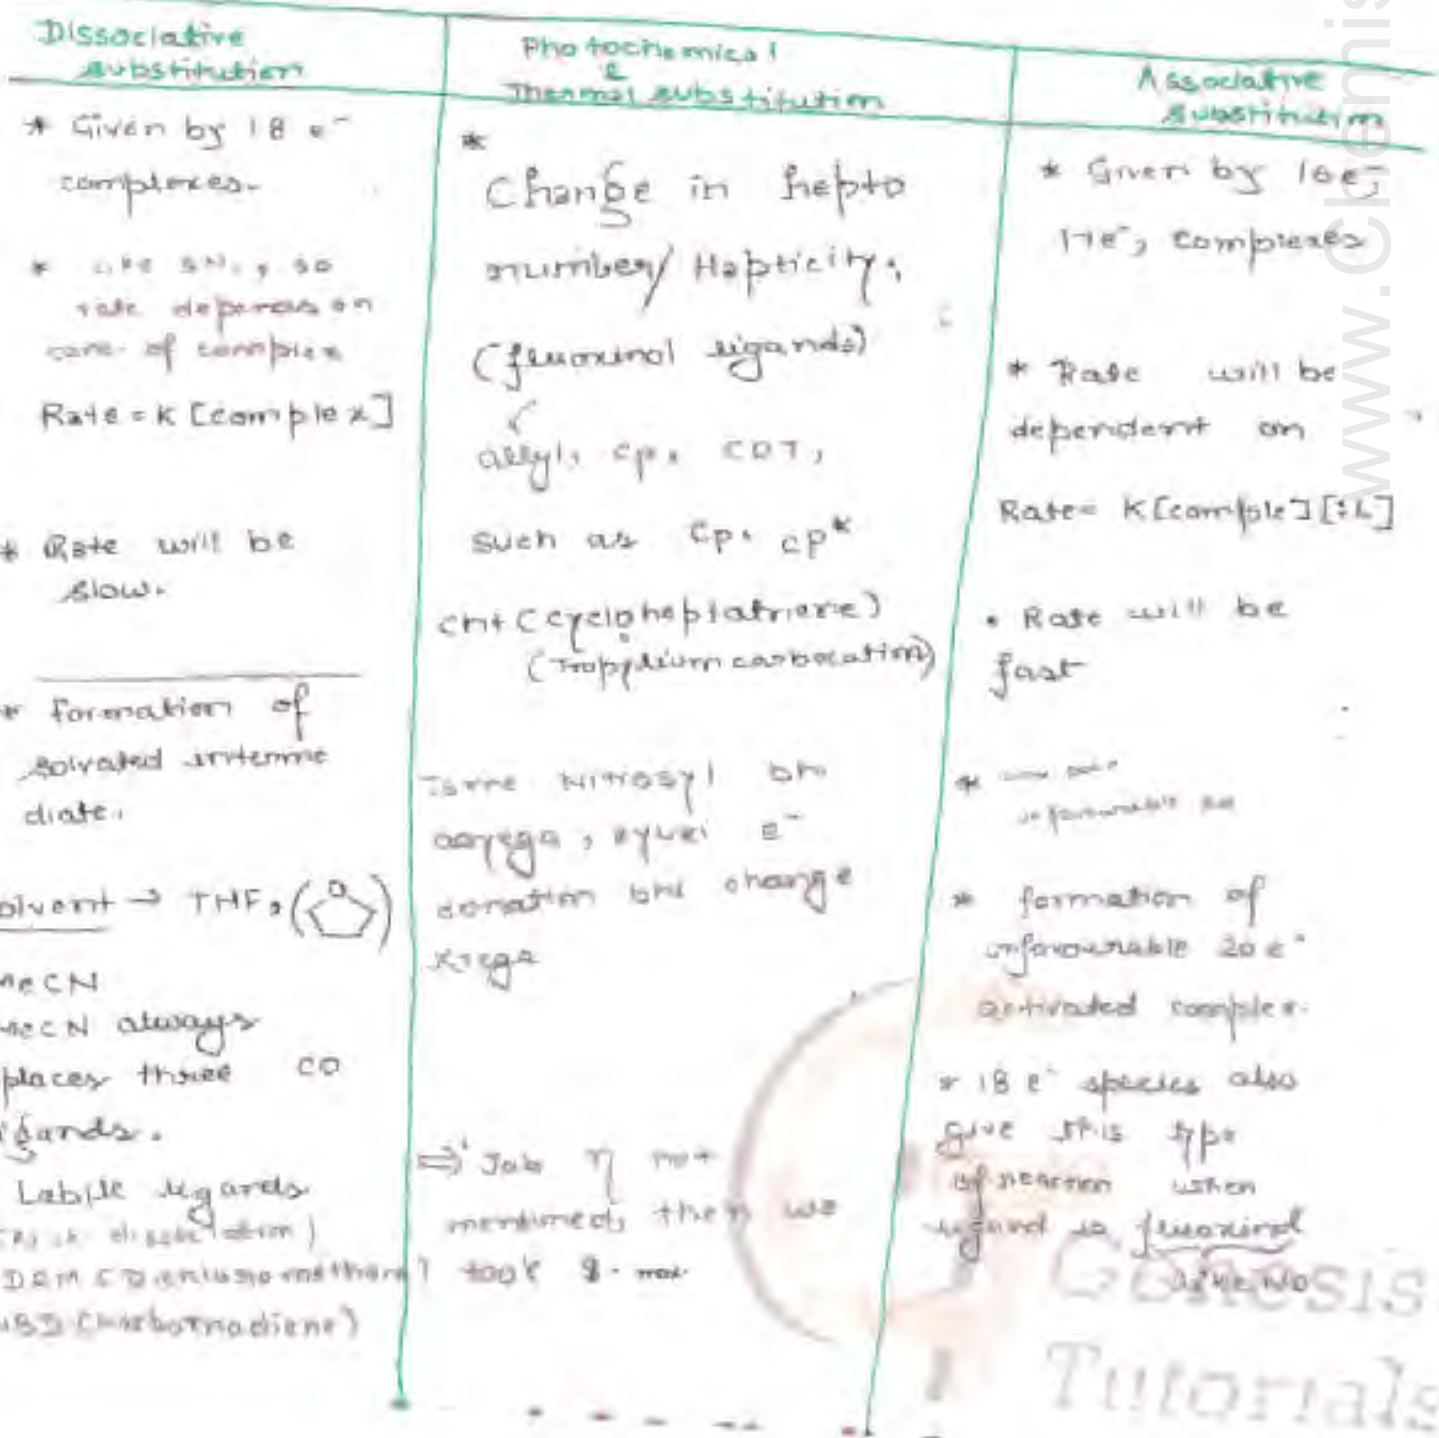 Dissociative
substitution
* Given by 18 e⁻
complexes.
* Like SN₁, so
rate depends on
conc. of complex
Rate = K [complex]
* Rate will be
slow.
* formation of
solvated interme
diate.
olvent → THF, (O)
MeCN
MeCN always
places three CO
igands.
Labile ligands
DCM (Dichloromethane)
NBD (Norbornadiene)
Photochemical
&
Thermal substitution
*
Change in hepto
number/ Hapticity.
(fluoxinol ligands)
allyl, cp, COT,
such as Cp, cp*
cht (cycloheptatriene)
(Tropylium carbocation)
Isme Nitrosyl bhi
aayega, kyuki e⁻
donation bhi change
krega
⇒ Jab η not
mentioned, then we
took η-max
Associative
substitution
* Given by 16e⁻,
17e⁻, complexes
* Rate will be
dependent on
Rate= K[comple][:L]
• Rate will be
fast
*
unfavourable
* formation of
unfavourable 20 e⁻
activated complex.
* 18 e⁻ species also
give this type
of reaction when
ligand is fluoxinol
like NO
www.Chemis
Genesis
Tutorials